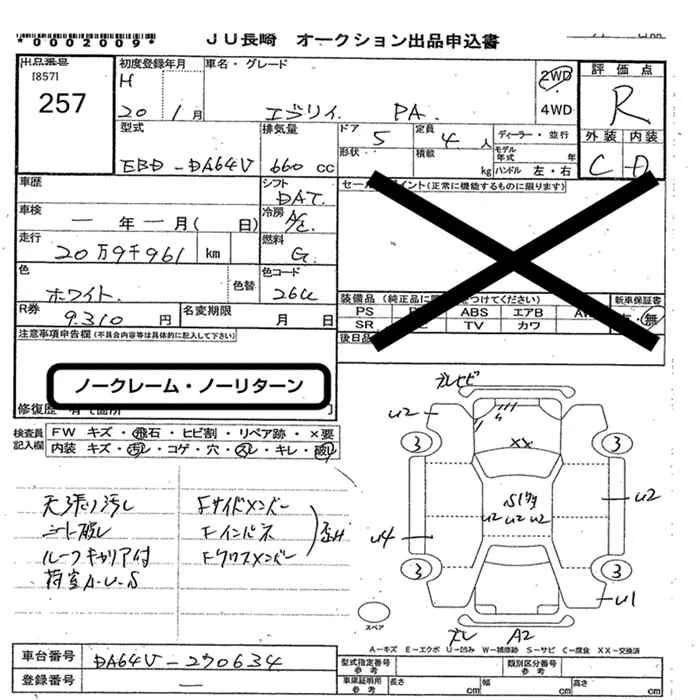 *0002009*
JU長崎 オークション出品申込書
出品番号
[857]
257
初度登録年月
H
20年1月
車名・グレード
エブリイ PA.
2WD
4WD
評価点
R
外装 内装
C D
型式
EBD-DA64V
排気量
660 cc
ドア 5
形状
定員 4人
積載 kg
ディーラー・並行
モデル年式 年
ハンドル 左・右
車歴
シフト
DAT.
セールスポイント (正常に機能するものに限ります)
車検
— 年 — 月( 日)
冷房
A/C.
走行
20万9千961 km
燃料
G.
色
ホワイト.
色替
色コード
26U
R券
9.310 円
名変期限
月 日
装備品 (純正品に をつけてください)
新車保証書
PS ABS エアB AW 有・無
SR TV カワ
後日品
注意事項申告欄 (不具合内容等は具体的に記入して下さい)
ノークレーム・ノーリターン
修復歴 有 (箇所 ]
検査員記入欄
FW キズ・飛石・ヒビ割・リペア跡・×要
内装 キズ・汚れ・コゲ・穴・スレ・キレ・破れ
天張り汚れ
シート破れ
ルーフキャリア付
荷室A・U・S
Fサイドメンバー
Fインパネ
Fクロスメンバー
歪け
ズレヒビ
U2
3
3
XX
S1
U2 U2 U2
U2
U4
3
3
U1
ズレ A2
スペア
A-キズ E-エクボ U-凹み W-補修跡 S-サビ C-腐食 XX-交換済
車台番号
DA64V-270634
登録番号
—
型式指定番号 参考
類別区分番号 参考
車庫証明用 参考
長さ cm
幅 cm
高さ cm